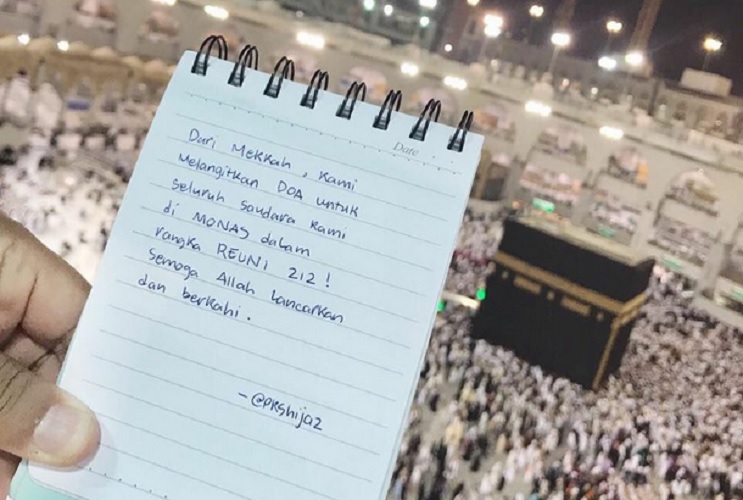 Date
Dari Mekkah, kami
melangitkan DOA untuk
seluruh saudara kami
di MONAS dalam
rangka REUNI 212!
Semoga Allah lancarkan
dan berkahi.
- @pkshijaz